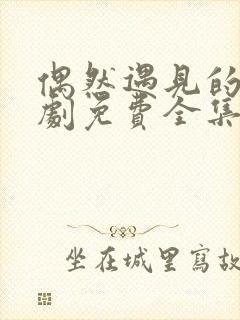 偶然遇见的
劇免費全集
坐在城里寫故